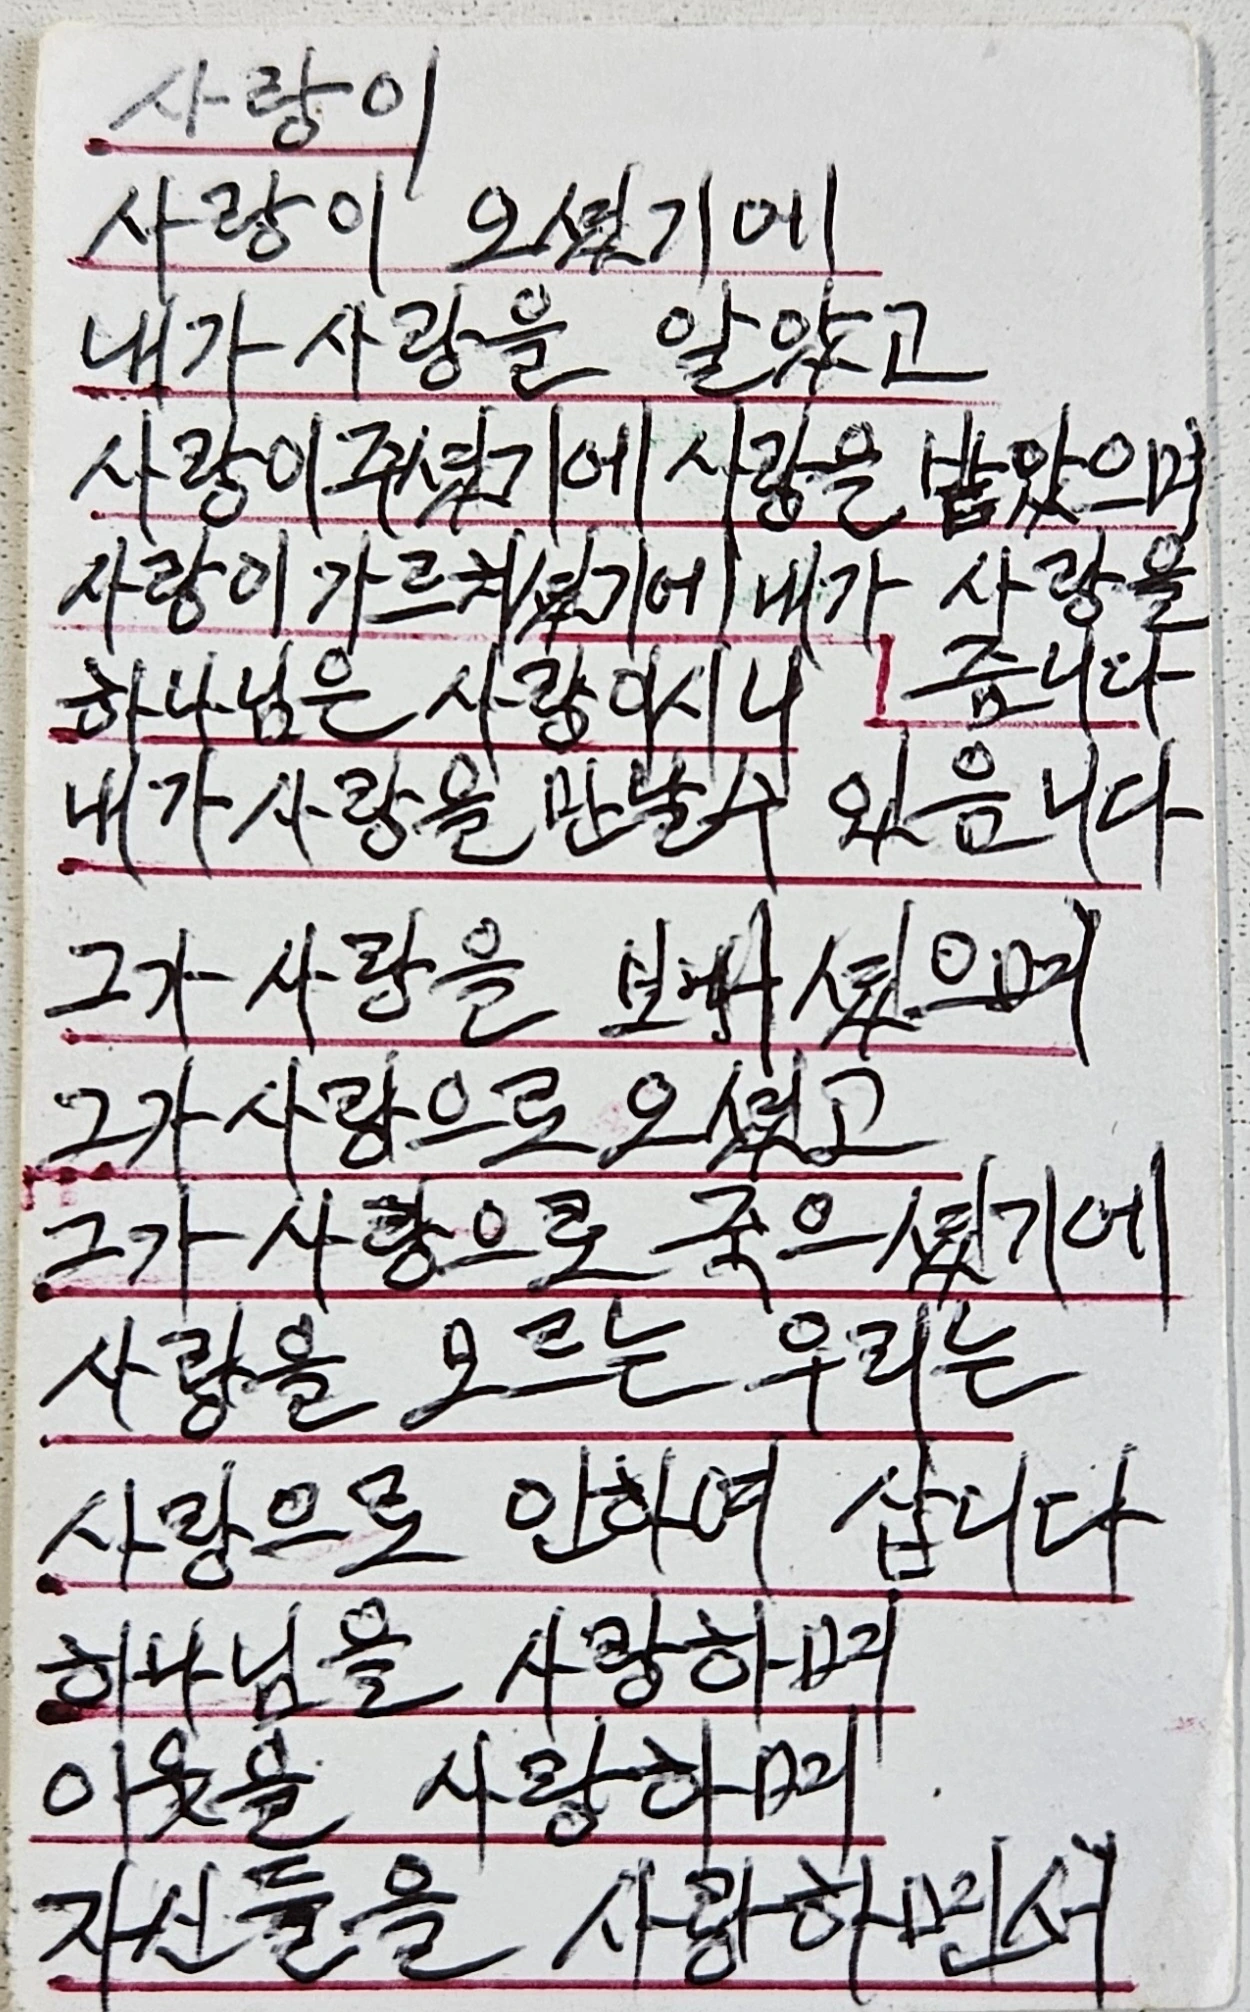 사랑이
사랑이 오셨기에
내가 사랑을 알았고
사랑이 주셨기에 사랑을 받았으며
사랑이 가르쳐셨기에 내가 사랑을
줍니다
하나님은 사랑이시니
내가 사랑을 만날수 있읍니다
그가 사랑을 보내셨으며
그가 사랑으로 오셨고
그가 사랑으로 죽으셨기에
사랑을 모르는 우리는
사랑으로 인하여 삽니다
하나님을 사랑하며
이웃을 사랑하며
자신들을 사랑하면서